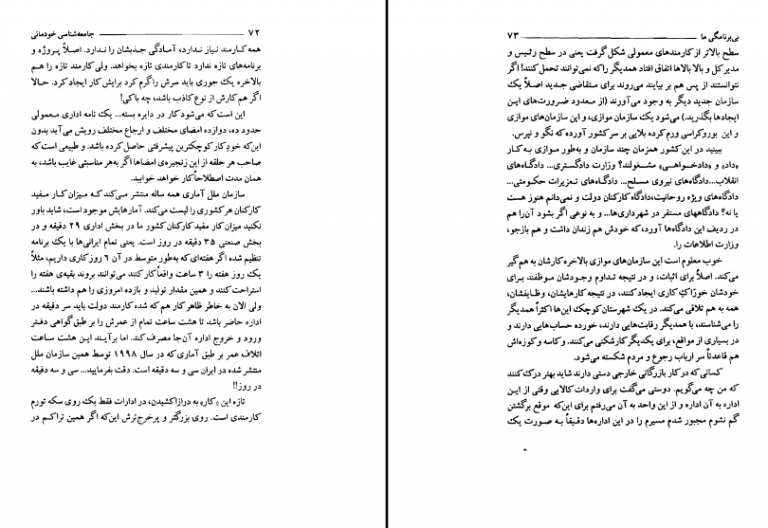 ۷۲ جامعه‌شناسی خودمانی
همه کارمند نیاز ندارد، آمادگی جذبشان را ندارد. اصلاً پروژه و
برنامه‌های تازه ندارد تا کارمندی تازه بخواهد. ولی کارمند تازه را هم
بالاخره یک جوری باید سرش را گرم کرد برایش کار ایجاد کرد. حالا
اگر هم کارش از نوع کاذب باشد، چه باکی؟!
این است که می‌شود کار در دایره بسته... یک نامه اداری معمولی
حدود ده، دوازده امضای مختلف و ارجاع مختلف رویش می‌آید بدون
این که خودِ کار کوچکترین پیشرفتی حاصل کرده باشد. و طبیعی است که
صاحب هر حلقه از این زنجیره‌ی امضاها اگر به هر مناسبتی غایب باشد، به
همان مدت اصطلاحاً کار خواهد خوابید.
سازمان ملل آماری همه ساله منتشر می‌کند که میزان کار مفید
کارکنان هر کشوری را لیست می‌کند. آمارهایش موجود است، شاید باور
نکنید میزان کار مفید کارکنان کشور ما در بخش اداری ۲۹ دقیقه و در
بخش صنعتی ۳۵ دقیقه در روز است. یعنی تمام ایرانی‌ها با یک برنامه
تنظیم شده اگر هفته‌ای که به‌طور متوسط در آن ۶ روز کاری داریم، مثلاً
یک روز هفته را ۳ ساعت واقعاً کار کنند می‌توانند بروند بقیه‌ی هفته را
استراحت کنند و همین مقدار تولید و بازده امروزی را هم داشته باشند...
ولی الان به خاطر ظاهر کار هم که شده کارمند دولت باید سر دقیقه در
اداره حاضر باشد تا هشت ساعت تمام از عمرش را بر طبق گواهی دفتر
ورود و خروج اداره آن‌جا مصرف کند. اما برآیند این هشت ساعت
اتلاف عمر بر طبق آماری که در سال ۱۹۹۸ توسط همین سازمان ملل
منتشر شده در ایران سی و سه دقیقه است. دقت بفرمایید... سی و سه دقیقه
در روز!!
تازه این «کار» به درازا کشیدن، در ادارات فقط یک روی سکه تورم
کارمندی است. روی بزرگتر و پرخرج‌ترش این‌که اگر همین تراکم در
بی‌برنامگی ما ۷۳
سطح بالاتر از کارمندهای معمولی شکل گرفت یعنی در سطح رئیس و
مدیرکل و بالا بالاها اتفاق افتاد همدیگر را که نمی‌توانند تحمل کنند! اگر
نتوانستند از پس هم بر بیایند می‌روند برای متقاضی جدید اصلاً یک
سازمان جدید دیگر به وجود می‌آورند (از معدود ضرورت‌های این
ایجادها بگذرید.) می‌شود یک سازمان موازی، و این سازمان‌های موازی
و این بوروکراسی ورم کرده بلایی بر سر کشور آورده که نگو و نپرس.
ببینید در این کشور همزمان چند سازمان و به‌طور موازی به کار
«داد» و «دادخواهی» مشغولند؟ وزارت دادگستری... دادگاه‌های
انقلاب... دادگاه‌های نیروی مسلح... دادگاه‌های تعزیرات حکومتی...
دادگاه‌های ویژه روحانیت، دادگاه کارکنان دولت و نمی‌دانم هنوز هست
یا نه؟ دادگاههای مستقر در شهرداری‌ها... و به نوعی اگر بشود آن را هم
در ردیف این دادگاه‌ها آورد، که خودش هم زندان داشت و هم بازجو،
وزارت اطلاعات را.
خوب معلوم است این سازمان‌های موازی بالاخره کارشان به هم گیر
می‌کند. اصلاً برای اثبات، و در نتیجه تداوم وجودشان موظفند برای
خودشان خوراکِ کاری ایجاد کنند، در نتیجه کارهایشان، وظایفشان،
همه به هم تلاقی می‌کند. در یک شهرستان کوچک این‌ها اکثراً همدیگر
را می‌شناسند، با همدیگر رقابت‌هایی دارند، خورده حساب‌هایی دارند و
در بسیاری از مواقع، برای یکدیگر کارشکنی می‌کنند. و کاسه و کوزه‌اش
هم قاعدتاً سر ارباب رجوع و مردم شکسته می‌شود.
کسانی که در کار بازرگانی خارجی دستی دارند شاید بهتر درک کنند
که من چه می‌گویم. دوستی می‌گفت برای واردات کالایی وقتی از این
اداره به آن اداره و از این واحد به آن می‌رفتم برای این‌که موقع برگشتن
گم نشوم مجبور شدم مسیرم را در این اداره‌ها دقیقاً به صورت یک